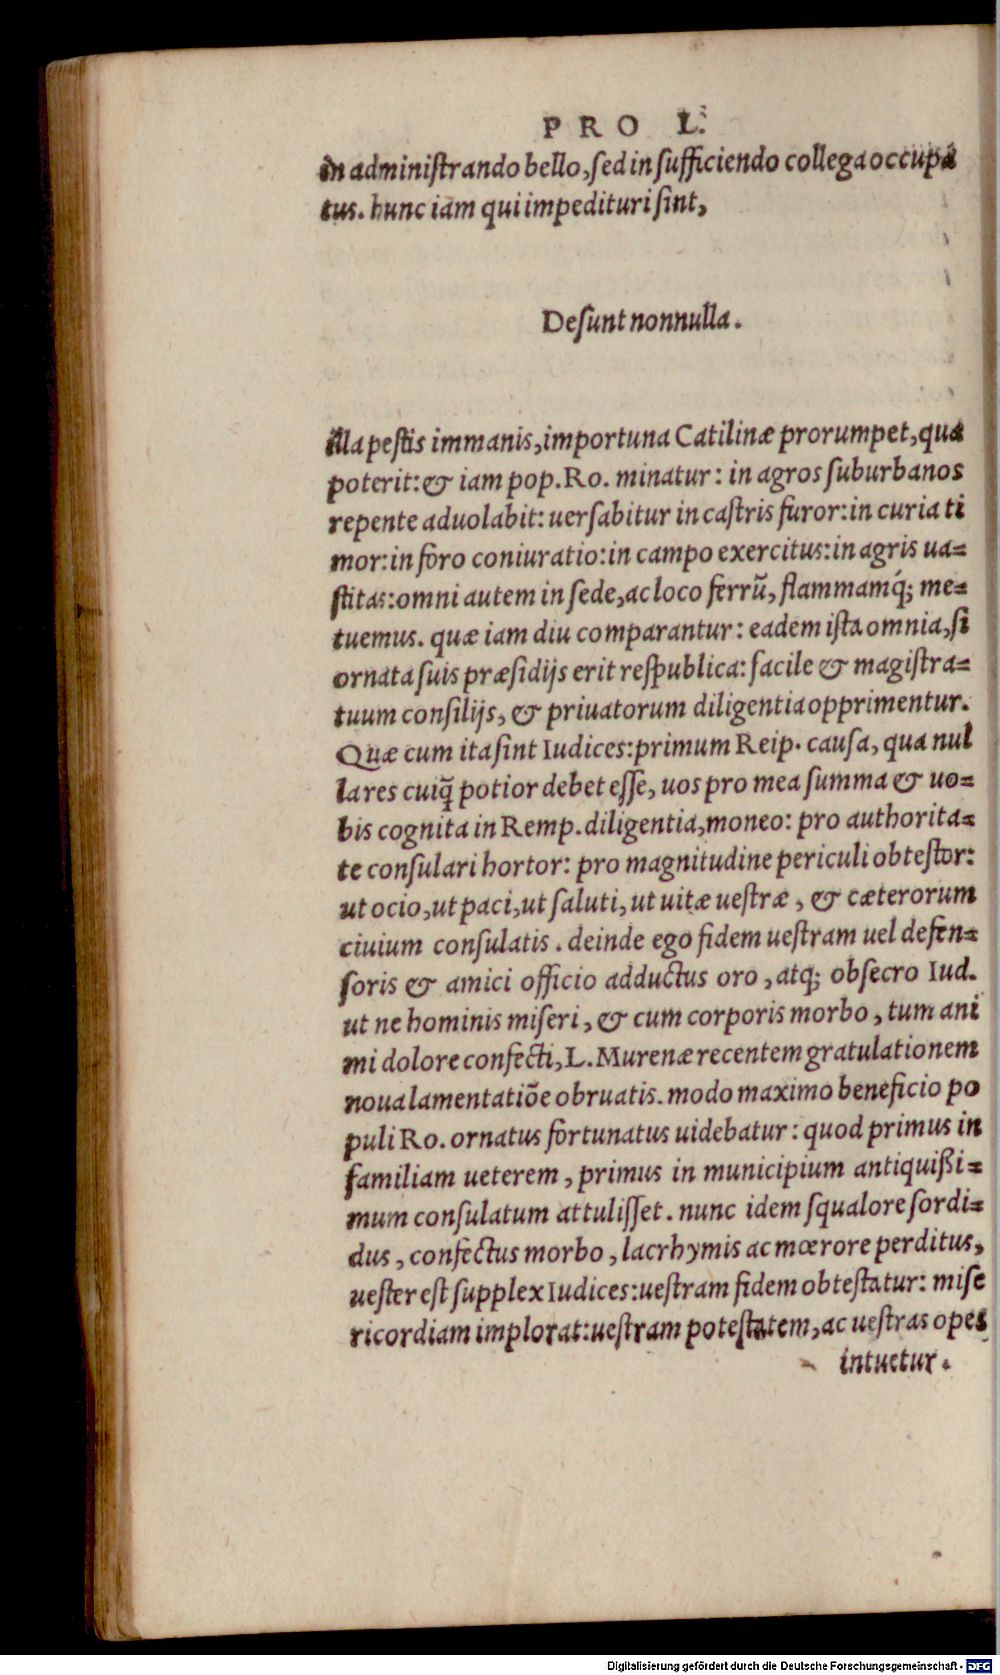 PRO L.
in administrando bello, sed in sufficiendo collega occupa
tus. hunc iam qui impedituri sint,
Desunt nonnulla.
illa pestis immanis, importuna Catilinæ prorumpet, qua
poterit: & iam pop. Ro. minatur: in agros suburbanos
repente aduolabit: uersabitur in castris furor: in curia ti
mor: in foro coniuratio: in campo exercitus: in agris ua=
stitas: omni autem in sede, ac loco ferrũ, flammamq́; me=
tuemus. quæ iam diu comparantur: eadem ista omnia, si
ornata suis præsidijs erit respublica: facile & magistra=
tuum consilijs, & priuatorum diligentia opprimentur.
Quæ cum ita sint Iudices: primum Reip. causa, qua nul
la res cuiq̃ potior debet esse, uos pro mea summa & uo=
bis cognita in Remp. diligentia, moneo: pro authorita=
te consulari hortor: pro magnitudine periculi obtestor:
ut ocio, ut paci, ut saluti, ut uitæ uestræ, & cæterorum
ciuium consulatis. deinde ego fidem uestram uel defen=
soris & amici officio adductus oro, atq; obsecro Iud.
ut ne hominis miseri, & cum corporis morbo, tum ani
mi dolore confecti, L. Murenæ recentem gratulationem
noua lamentatiõe obruatis. modo maximo beneficio po
puli Ro. ornatus fortunatus uidebatur: quod primus in
familiam ueterem, primus in municipium antiquißi=
mum consulatum attulisset. nunc idem squalore sordi=
dus, confectus morbo, lacrhymis ac mœrore perditus,
uester est supplex Iudices: uestram fidem obtestatur: mise
ricordiam implorat: uestram potestatem, ac uestras opes
intuetur.
Digitalisierung gefördert durch die Deutsche Forschungsgemeinschaft - DFG